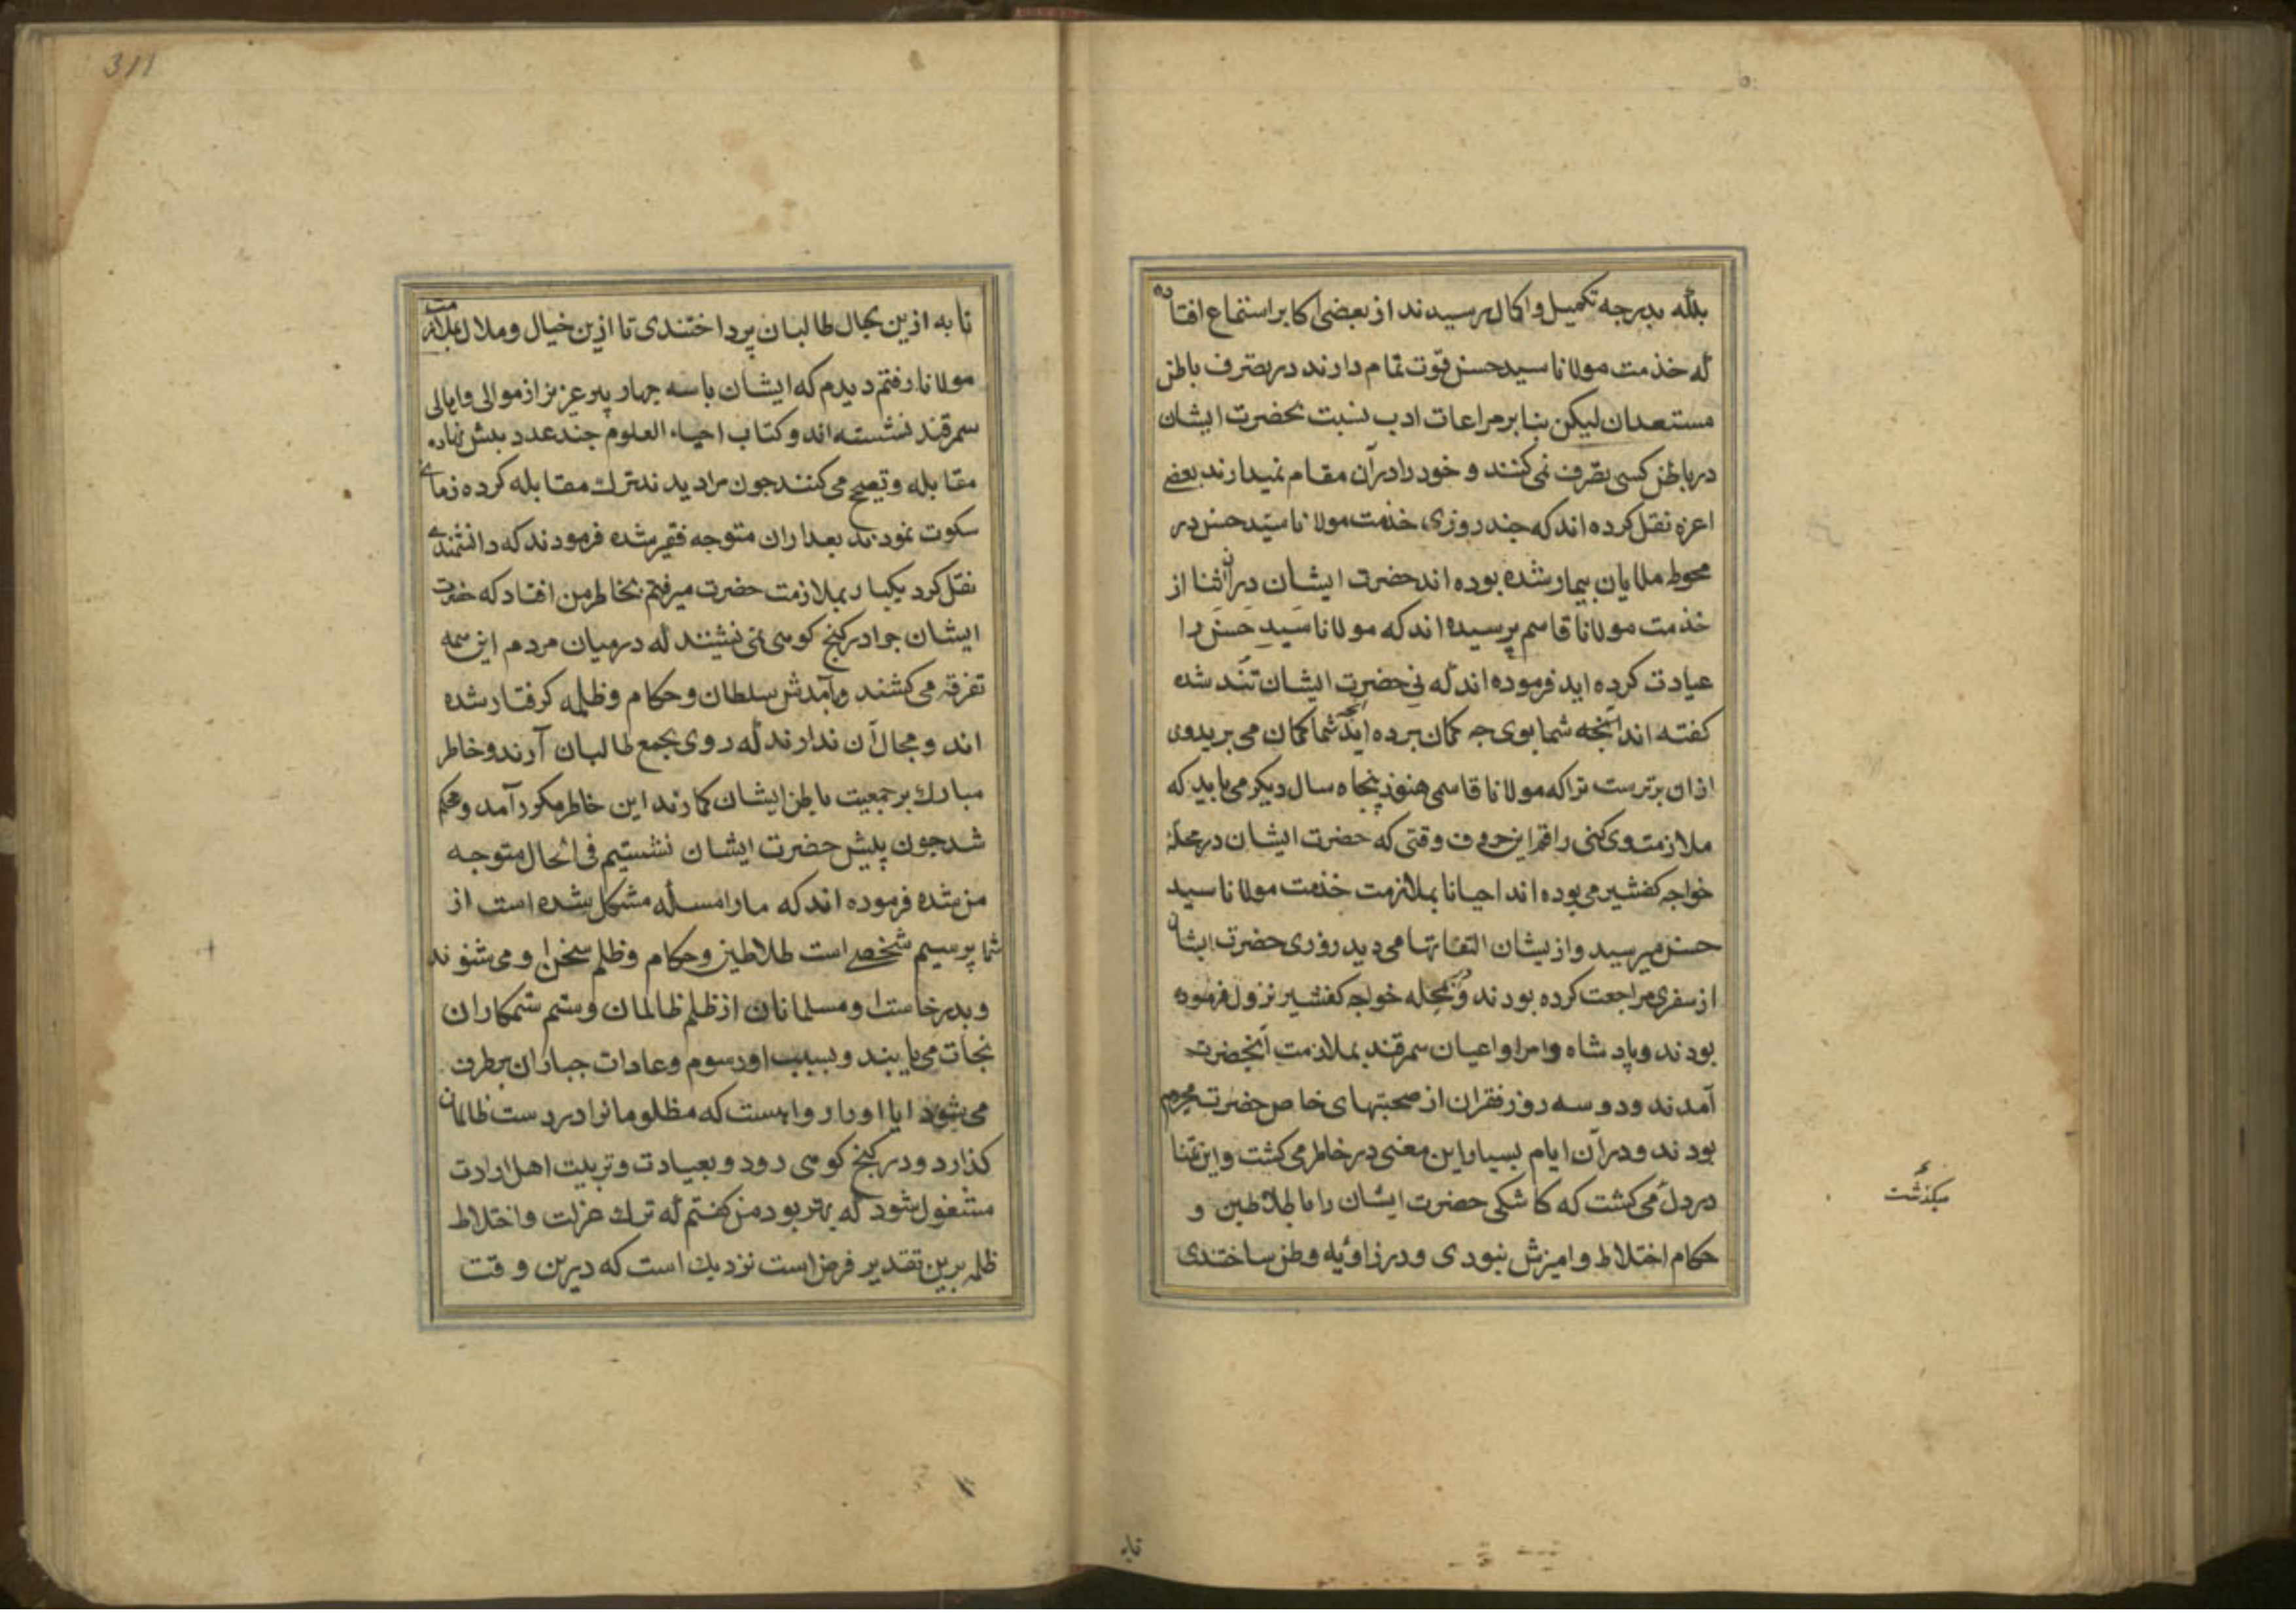 بلکه بدرجه تکمیل و اکمال رسیدند از بعضی اکابر استماع افتاده
که خدمت مولانا سید حسن قوت تمام دارند در تصرف باطن
مستعدان لیکن بنا بر مراعات ادب نسبت بحضرت ایشان
در باطن کسی تصرف نمی کنند و خود را در آن مقام نمیدارند بعضی
اعزه نقل کرده اند که چند روزی خدمت مولانا سید حسن در
محوطه ملایان بیمار شده بوده اند حضرت ایشان در آن اثنا از
خدمت مولانا قاسم پرسیده اند که مولانا سید حسن را
عیادت کرده اید فرموده اند که نی حضرت ایشان تند شده
کفته اند آنچه شما بوی چه کمان برده اید شما کمان می برید وی
ازان برترست تراکه مولانا قاسمی هنوز پنجاه سال دیکر می باید که
ملازمت وی کنی راقم این حروف وقتی که حضرت ایشان در محله
خواجه کفشیر می بوده اند احیانا بملازمت خدمت مولانا سید
حسن میرسید و از یشان التفاتها می دید روزی حضرت ایشان
از سفری مراجعت کرده بودند و در محله خواجه کفشیر نزول فرموده
بودند و پادشاه و امرا و اعیان سمرقند بملازمت آنحضرت
آمدند و دو سه روز فقران از صحبتهای خاص حضرت محروم
بودند و در آن ایام بسیار این معنی در خاطر می کشت و این تمنا
در دل می کشت که کاشکی حضرت ایشان را با سلاطین و
حکام اختلاط و امیزش نبودی و در زاویه وطن ساختندی
میکذشت
تا به
311
تا به ازین بحال طالبان پرداختندی تا ازین خیال و ملال بملازمت
مولانا رفتم دیدم که ایشان با سه چهار پیر عزیز از موالی و اهالی
سمرقند نشسته اند و کتاب احیاء العلوم چند عدد پیش نهاده
مقابله و تصحیح می کنند چون مرا دیدند ترک مقابله کرده زمانی
سکوت نمودند بعد ازان متوجه فقیر شده فرمودند که دانشمندی
نقل کرد یکبار بملازمت حضرت میرفتم بخاطر من افتاد که حضرت
ایشان چرا در کنج کوهی نمی نشینند که در میان مردم این همه
تفرقه می کشند و بآمدش سلطان و حکام و ظلمه کرفتار شده
اند و مجال آن ندارند که روی بجمع طالبان آرند و خاطر
مبارک بر جمعیت باطن ایشان کمارند این خاطر مکرر آمد و محکم
شد چون پیش حضرت ایشان نشستیم فی الحال متوجه
من شده فرموده اند که مارا مسأله مشکل شده است از
شما پرسیم شخصی است سلاطین و حکام و ظلمه سخن او می شنوند
و بدرخاست او مسلمانان از ظلم ظالمان و ستم ستمکاران
نجات می یابند و بسبب او رسوم و عادات جباران برطرف
می شود ایا او را روا هست که مظلومانرا در دست ظالمان
کذارد و در کنج کوهی رود و بعبادت و تربیت اهل ارادت
مشغول شود که بهتر بود من کفتم که ترک عزلت و اختلاط
ظلمه برین تقدیر فرض است نزدیک است که درین وقت